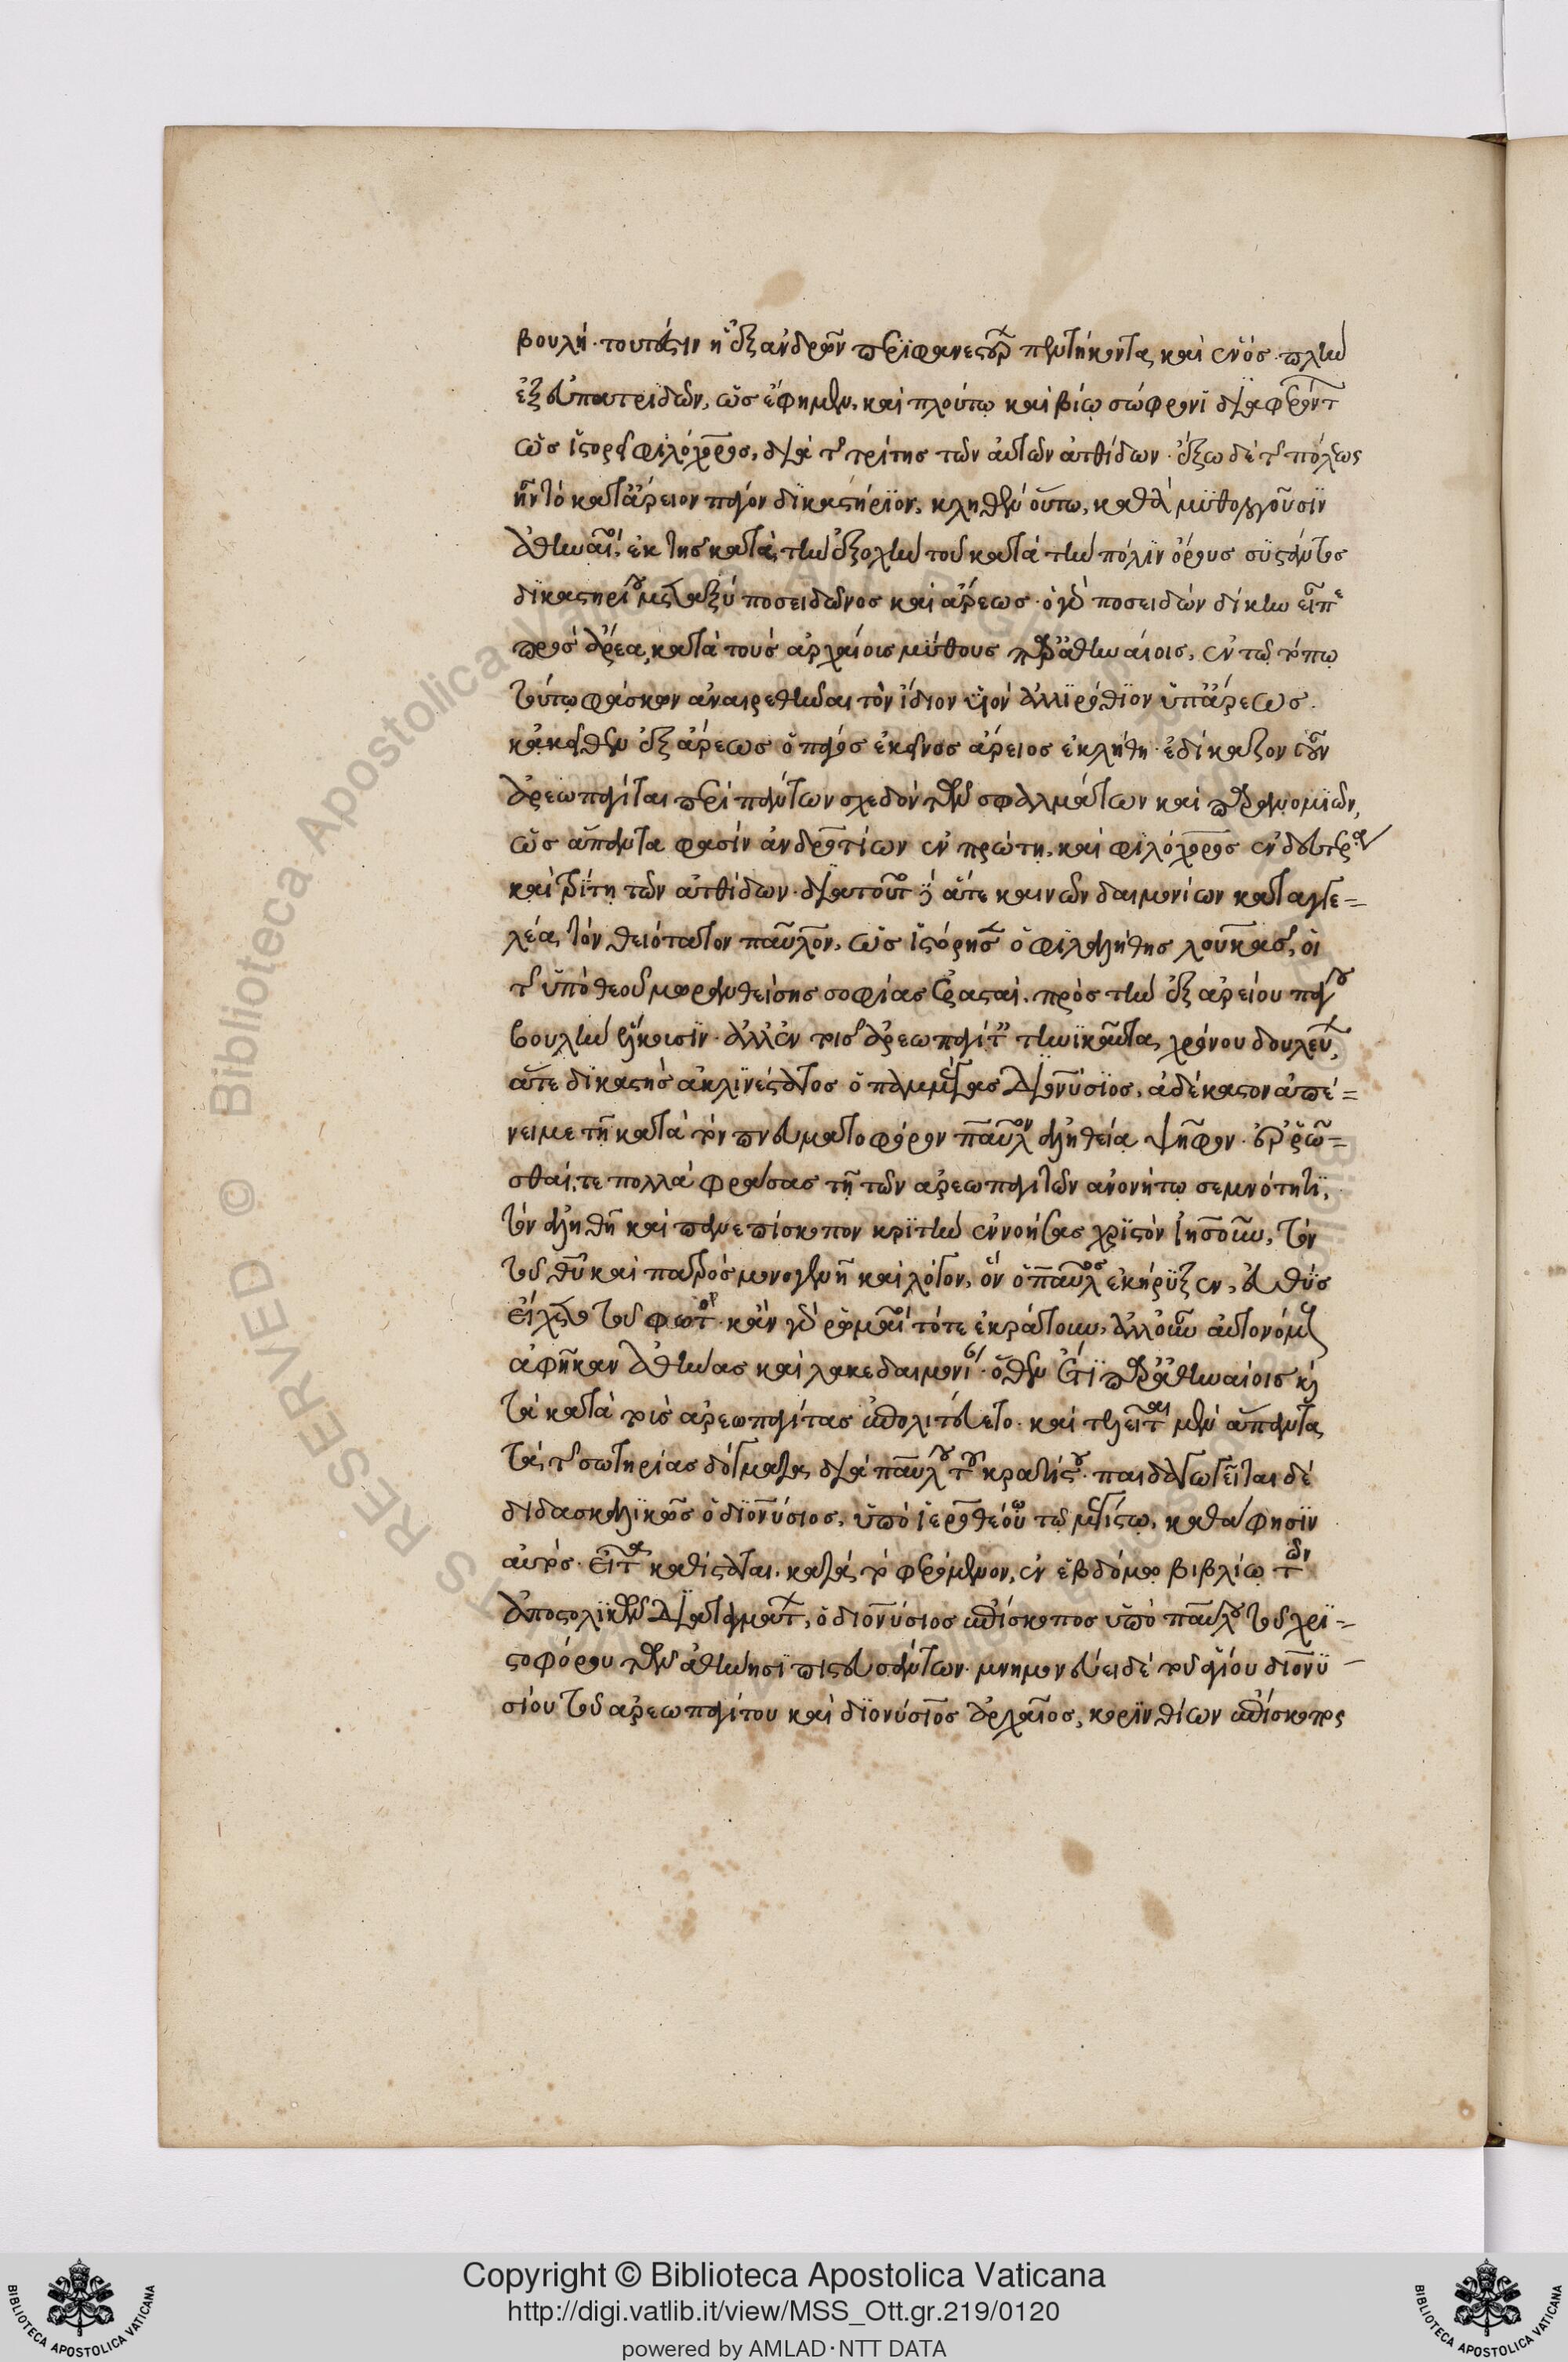 βουλή· τουτέστιν ἡ ἐξ ἀνδρῶν περιφανεστέρων πεντήκοντα καὶ ἑνός· πλὴν
ἐξ εὐπατριδῶν, ὡς ἔφημεν, καὶ πλούτῳ καὶ βίῳ σώφρονι διαφερόντων
ὡς ἱστορεῖ φιλόχορος, διὰ τῆς τρίτης τῶν αὐτῶν ἀτθίδων· ἔξω δὲ τῆς πόλεως
ἦν τὸ κατ' ἄρειον πάγον δικαστήριον, κληθὲν οὕτω, καθὰ μυθολογοῦσιν
ἀθηναῖοι, ἐκ τῆς κατὰ τὴν ἐξοχὴν τοῦ κατὰ τὴν πόλιν ὄρους συστάντος
δικαστηρίου μεταξὺ ποσειδῶνος καὶ ἄρεως· ὁ γὰρ ποσειδῶν δίκην εἶπε
πρὸς ἄρεα, κατὰ τοὺς ἀρχαίοις μύθους παρ' ἀθηναίοις, ἐν τῷ τόπῳ
τούτῳ φάσκων ἀναιρεθῆναι τὸν ἴδιον υἱὸν ἀλιρρόθιον ὑπ' ἄρεως·
κἀκεῖθεν ἐξ ἄρεως ὁ πάγος ἐκεῖνος ἄρειος ἐκλήθη· ἐδίκαζον οὖν
ἀρεωπαγῖται περὶ πάντων σχεδὸν τῶν σφαλμάτων καὶ παρανομιῶν,
ὡς ἅπαντα φασὶν ἀνδροτίων ἐν πρώτῃ, καὶ φιλόχορος ἐν δευτέρα
καὶ τρίτῃ τῶν ἀτθίδων· διὰ τοῦτο καὶ ἅτε καινῶν δαιμονίων καταγγε=
λέα τὸν θειότατον παῦλον, ὡς ἱστόρησεν ὁ φιλαλήθης λουκᾶς, οἱ
τῆς ὑπὸ θεοῦ μωρανθείσης σοφίας ἐρασταὶ πρὸς τὴν ἐξ ἀρείου πάγου
βουλὴν εἵλκυσιν· ἀλλ' ἐν τοῖς ἀρεωπαγίταις τηνικαῦτα χρόνου δουλεύων,
ἅτε δικαστὴς ἀκλινέστατος ὁ παμμέγας διονύσιος, ἀδέκαστον ἀπέ=
νειμε τῇ κατὰ τὸν πνευματοφόρον παῦλον ἀληθείᾳ ψῆφον· ἐρρῶ=
σθαί τε πολλὰ φράσας τῇ τῶν ἀρεωπαγιτῶν ἀνονήτῳ σεμνότητι,
τὸν ἀληθῆ καὶ πανεπίσκοπον κριτὴν ἐννοήσας χριστὸν ἰησοῦν, τὸν
τοῦ θεοῦ καὶ πατρὸς μονογενῆ καὶ λόγον, ὃν ὁ παῦλος ἐκήρυξεν, εὐθὺς
εἴχετο τοῦ φωτός· κἂν γὰρ ῥωμαῖοι τότε ἐκράτουν, ἀλλ' οὖν αὐτονόμους
ἀφῆκαν ἀθήνας καὶ λακεδαίμονα· ὅθεν ἔτι παρ' ἀθηναίοις καὶ
τὰ κατὰ τοὺς ἀρεωπαγίτας ἐπολιτεύετο· καὶ τελεῖται μὲν ἅπαντα
τὰ τῆς σωτηρίας δόγματα διὰ παύλου τοῦ κρατίστου· παιδαγωγεῖται δὲ
διδασκαλικῶς ὁ διονύσιος, ὑπὸ ἱεροθέου τῷ μεγίστῳ, καθά φησιν
αὐτός· εἶτα καθίσταται κατὰ τὸ φερόμενον, ἐν ἑβδόμῳ βιβλίῳ τῶν
ἀποστολικῶν διαταγμάτων, ὁ διονύσιος ἐπίσκοπος ὑπὸ παύλου τοῦ χρι=
στοφόρου τῶν ἀθήνησι πιστευσάντων· μνημονεύει δὲ τοῦ ἁγίου διονυ–
σίου τοῦ ἀρεωπαγίτου καὶ διονύσιος ἀρχαῖος, κορινθίων ἐπίσκοπος
Copyright © Biblioteca Apostolica Vaticana
http://digi.vatlib.it/view/MSS_Ott.gr.219/0120
powered by AMLAD·NTT DATA